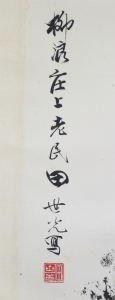 柳浪庄上老民田世光写